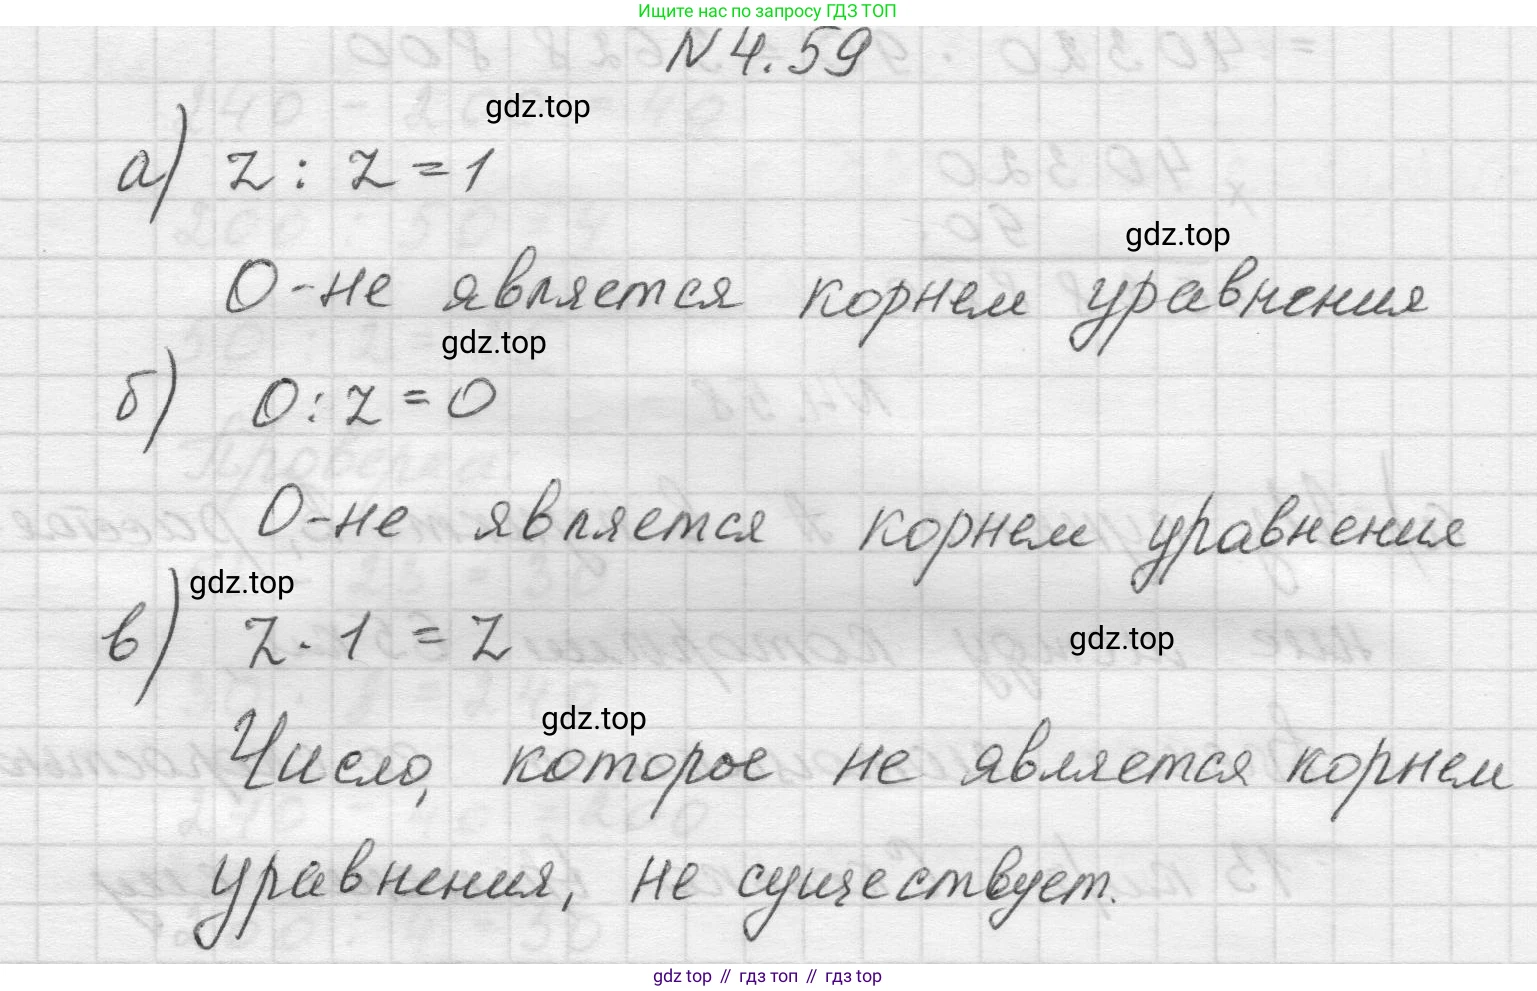 Ищите нас по запросу ГДЗ ТОП
N 4.59
gdz.top
а) z : z = 1
gdz.top
0-не является корнем уравнения
gdz.top
б) 0 : z = 0
0-не является корнем уравнения
gdz.top
в) z · 1 = z
gdz.top
gdz.top
Число, которое не является корнем
уравнения, не существует.
gdz top // гдз топ // гдз top